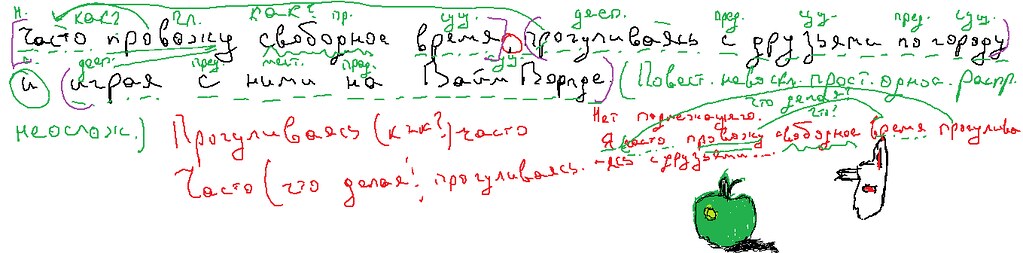 н. как? гл. как? пр. сущ. деепр. пред. сущ. пред. сущ.
Часто провожу свободное время, прогуливаясь с друзьями по городу
и. деепр. пред. мест. пред. сущ.
и играя с ними на Вайм Ворлде (Повест. невоскл. прост. однос. распр.
неослож.) Прогуливаясь (как?) часто
Часто (что делая?, прогуливаясь.
Нет подлежащего.
что делая? что?
Я часто провожу свободное время прогулива
-ясь с друзьями...